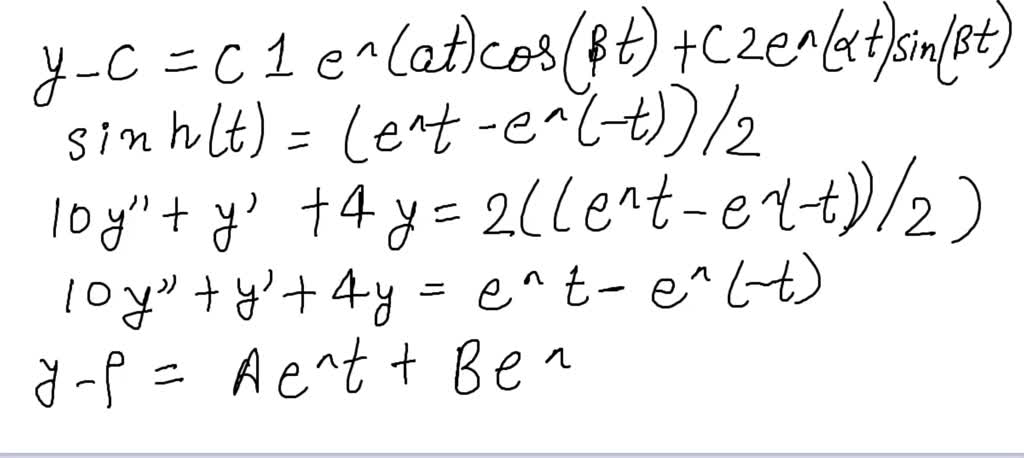 y-c = c 1 e^(at)cos(βt) + C2e^(αt)sin(βt)
sin h(t) = (e^t - e^(-t))/2
10y" + y' + 4y = 2((e^t - e^(-t))/2)
10y" + y' + 4y = e^t - e^(-t)
y-p = Ae^t + Be^